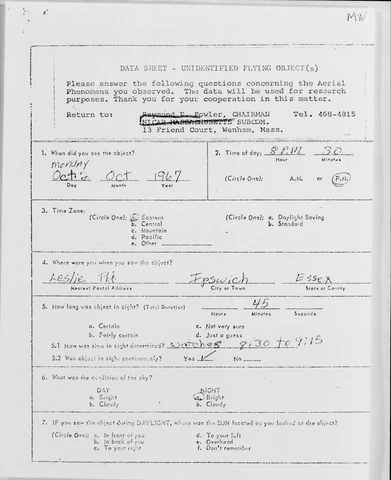 MW
DATA SHEET - UNIDENTIFIED FLYING OBJECT(s)
Please answer the following questions concerning the Aerial
Phenomena you observed. The data will be used for research
purposes. Thank you for your cooperation in this matter.
Return to: Raymond E. Fowler, CHAIRMAN Tel. 468-4815
NICAP MASSACHUSETTS SUBCOM.
13 Friend Court, Wenham, Mass.
1. When did you see the object?
Monday
Oct 2 Oct 1967
Day Month Year
2. Time of day: 8 P.M. 30
Hour Minutes
(Circle One): A.M. or P.M.
3. Time Zone:
(Circle One): a. Eastern (Circle One): a. Daylight Saving
b. Central b. Standard
c. Mountain
d. Pacific
e. Other
4. Where were you when you saw the object?
Leslie Rd Ipswich Essex
Nearest Postal Address City or Town State or County
5. How long was object in sight? (Total Duration) 45
Hours Minutes Seconds
a. Certain c. Not very sure
b. Fairly certain d. Just a guess
5.1 How was time in sight determined? watches 8:30 to 9:15
5.2 Was object in sight continuously? Yes ✓ No
6. What was the condition of the sky?
DAY NIGHT
a. Bright a. Bright
b. Cloudy b. Cloudy
7. IF you saw the object during DAYLIGHT, where was the SUN located as you looked at the object?
(Circle One): a. In front of you d. To your left
b. In back of you e. Overhead
c. To your right f. Don't remember